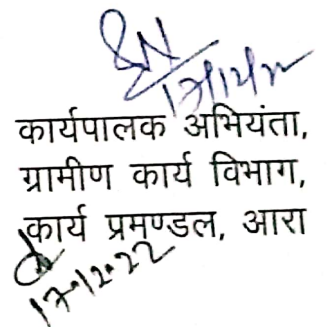 कार्यपालक अभियंता,
ग्रामीण कार्य विभाग,
कार्य प्रमण्डल, आरा
17.12.22